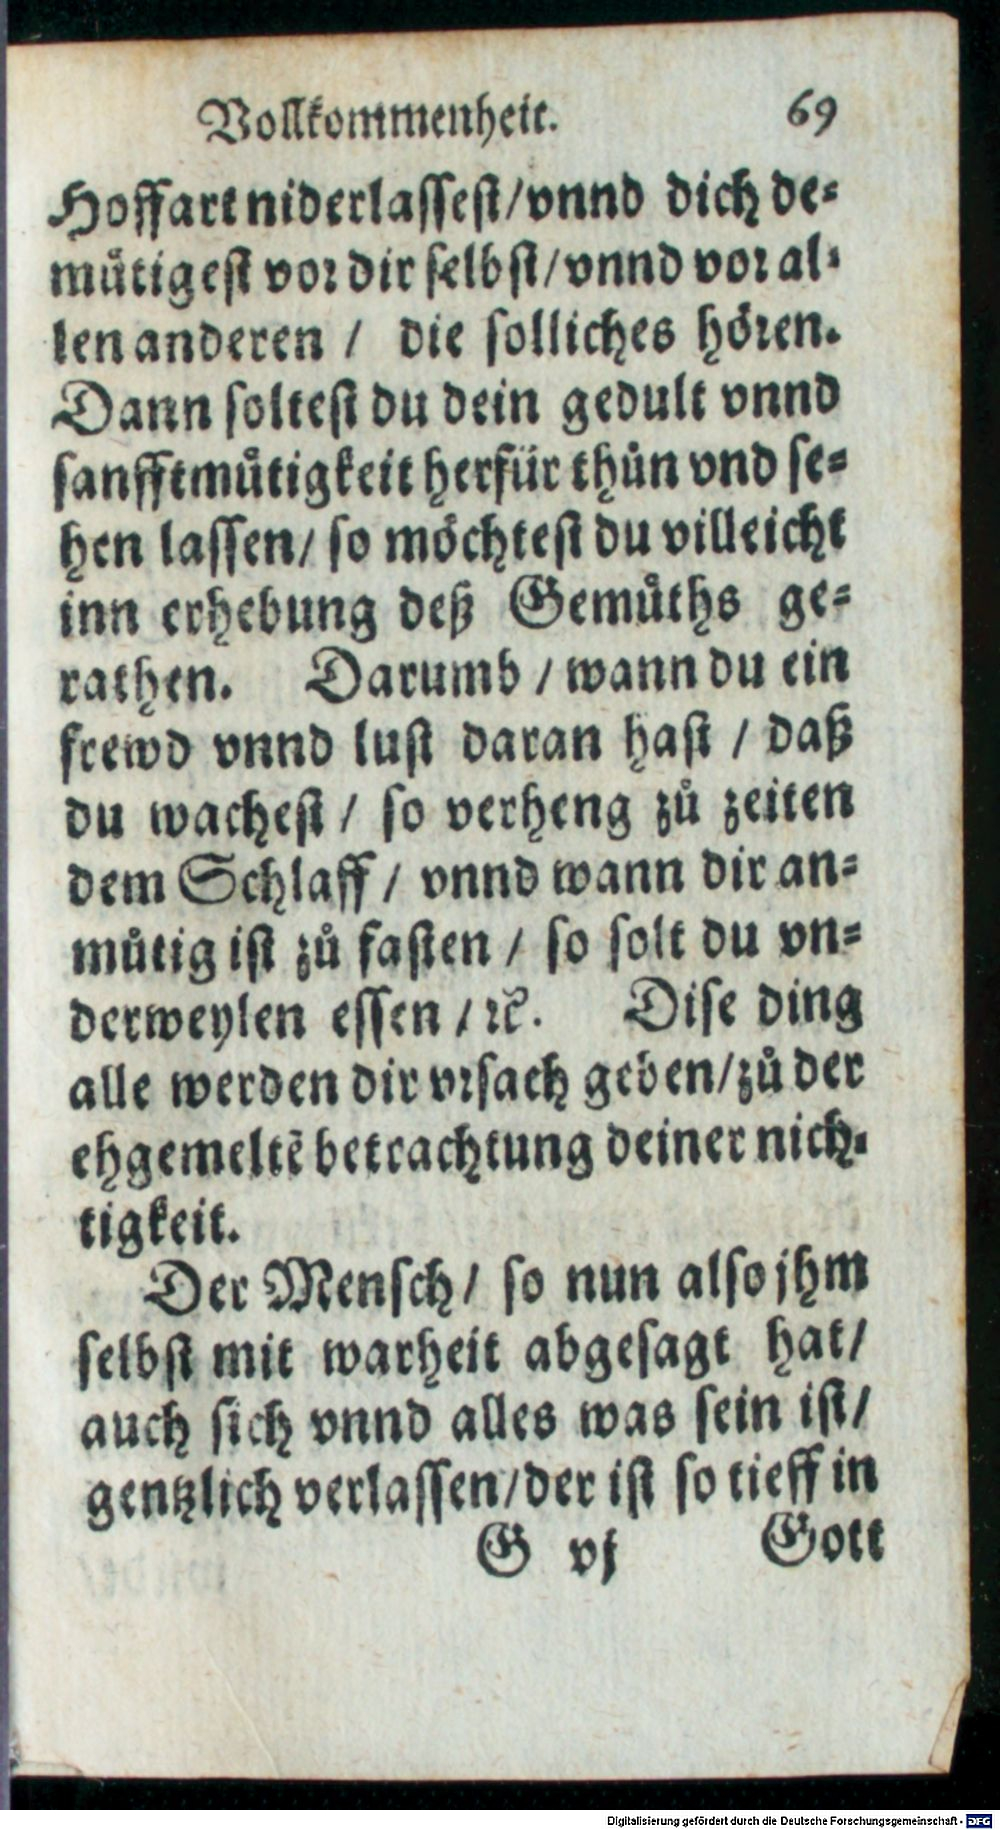 Vollkommenheit. 69
Hoffart niderlassest/vnnd dich de-
mütigest vor dir selbst/vnnd vor al-
len anderen / die solliches hören.
Dann soltest du dein gedult vnnd
sanfftmůtigkeit herfür thůn vnd se-
hen lassen/ so möchtest du villeicht
inn erhebung deß Gemůths ge-
rathen. Darumb / wann du ein
frewd vnnd lust daran hast / daß
du wachest / so verheng zů zeiten
dem Schlaff / vnnd wann dir an-
můtig ist zů fasten / so solt du vn-
derweylen essen / ꝛc̃. Dise ding
alle werden dir vrsach geben/zů der
ehgemeltẽ betrachtung deiner nich-
tigkeit.
Der Mensch / so nun also jhm
selbst mit warheit abgesagt hat/
auch sich vnnd alles was sein ist/
gentzlich verlassen/der ist so tieff in
G vj Gott
Digitalisierung gefördert durch die Deutsche Forschungsgemeinschaft - DFG